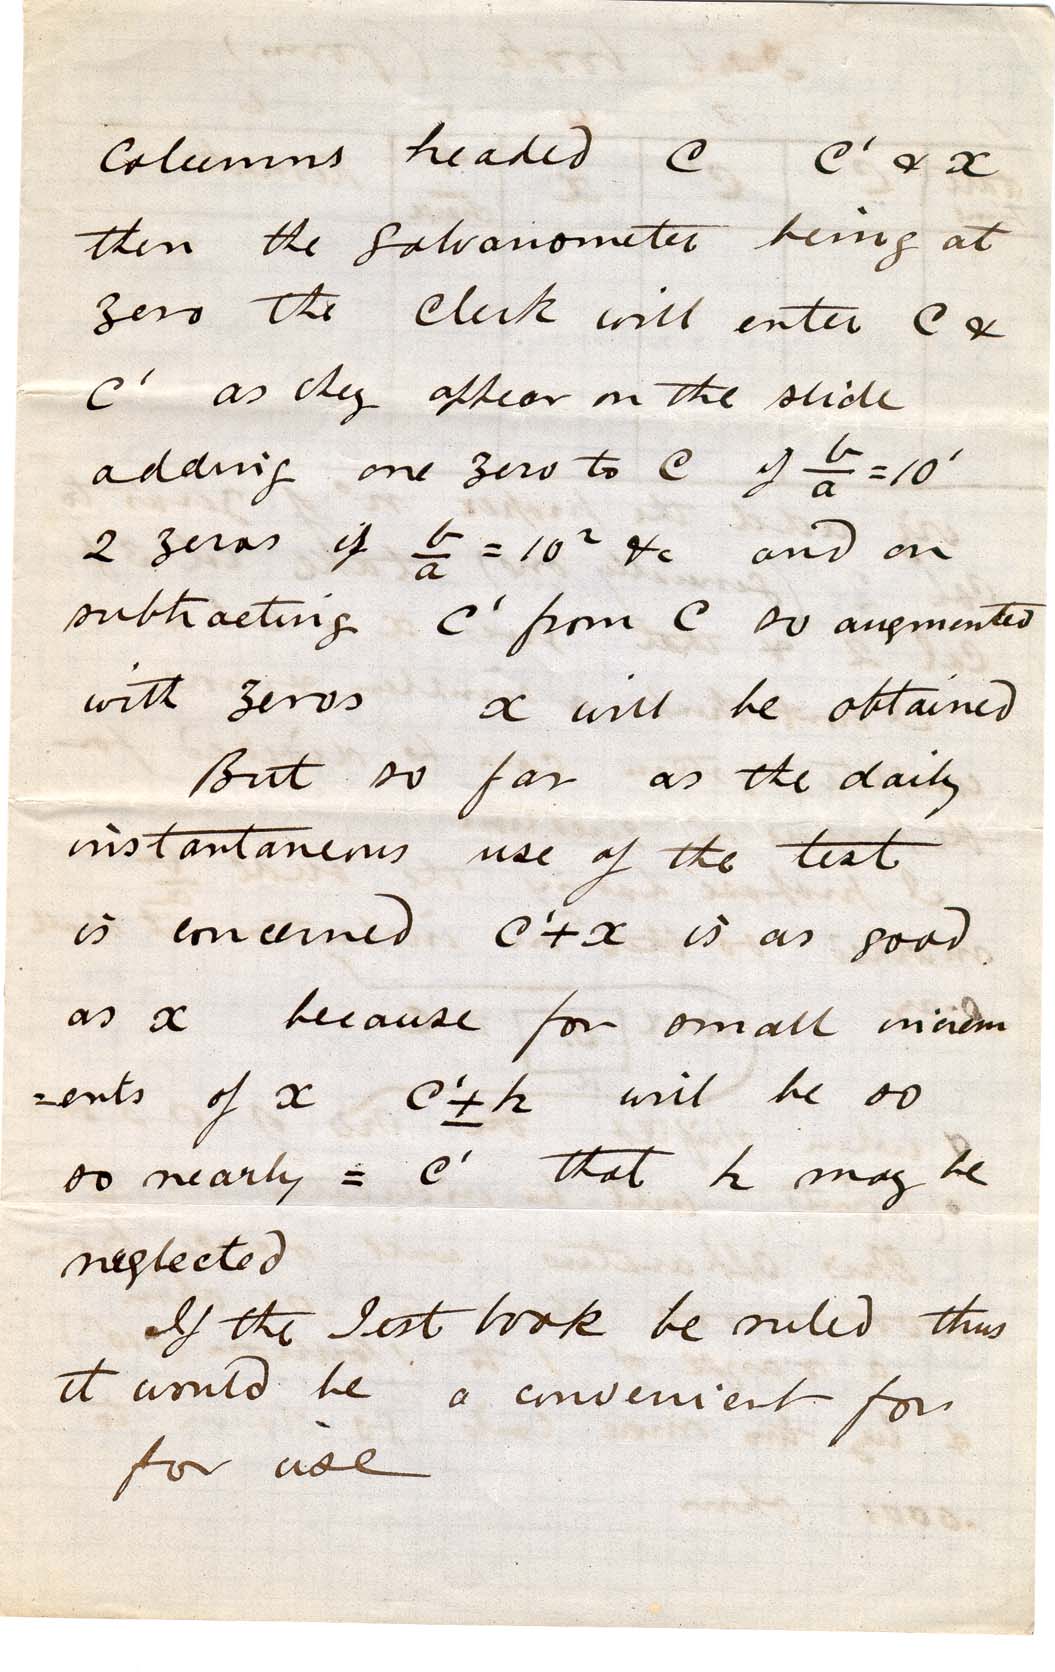 Columns headed C C' & x
then the galvanometer being at
zero the Clerk will enter C &
C' as they appear on the slide
adding one zero to C if b/a = 10'
2 zeros if b/a = 10² &c and on
subtracting C' from C so augmented
with zeros x will be obtained
But so far as the daily
instantaneous use of the test
is concerned C'+x is as good
as x because for small increm
=ents of x C'±k will be so
so nearly = C' that k may be
neglected
If the Test book be ruled thus
it would be a convenient for
for use